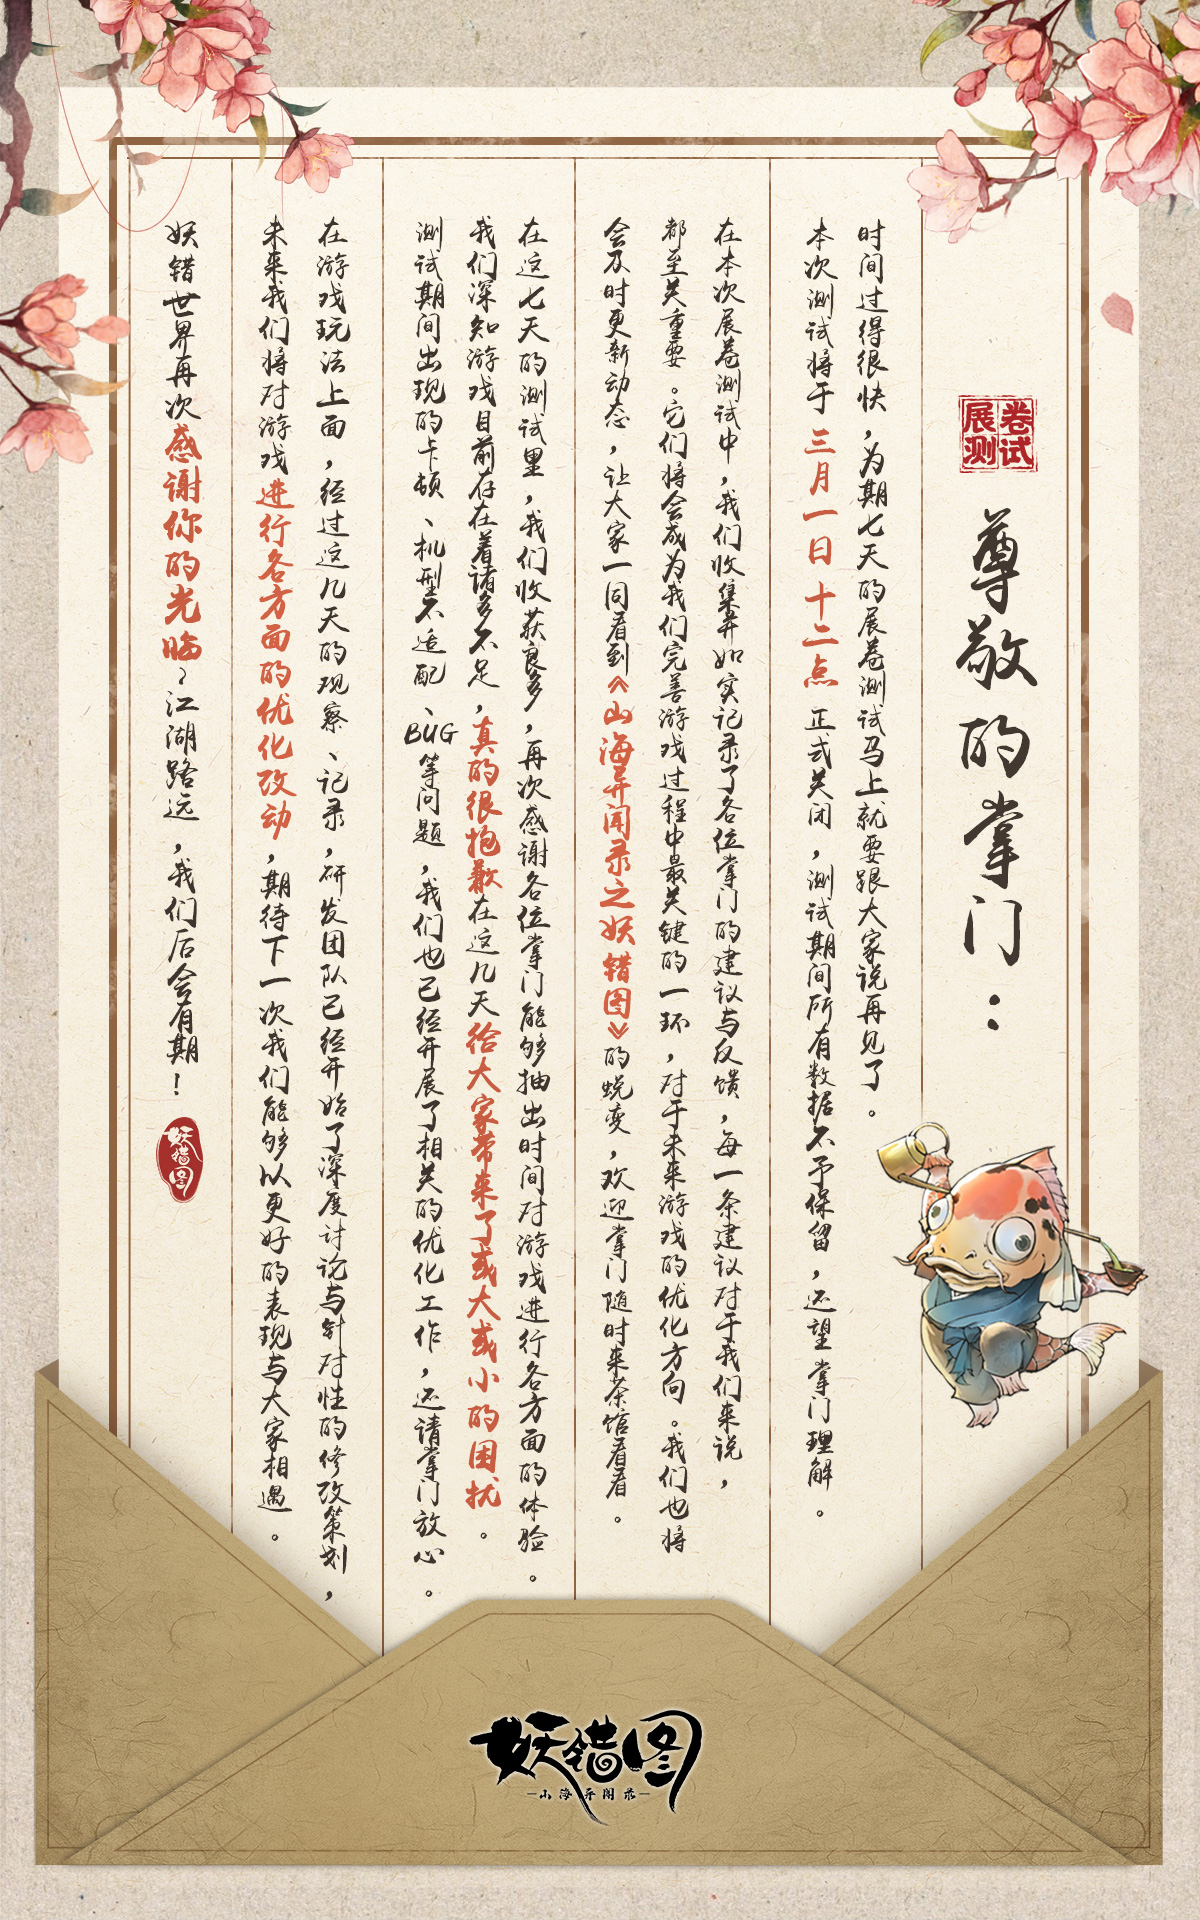 展卷测试
尊敬的掌门：
时间过得很快，为期七天的展卷测试马上就要跟大家说再见了。
本次测试将于三月一日十二点正式关闭，测试期间所有数据不予保留，还望掌门理解。
在本次展卷测试中，我们收集并如实记录了各位掌门的建议与反馈，每一条建议对于我们来说，
都至关重要。它们将会成为我们完善游戏过程中最关键的一环，对于未来游戏的优化方向。我们也将
会及时更新动态，让大家一同看到《山海异闻录之妖错图》的蜕变，欢迎掌门随时来茶馆看看。
在这七天的测试里，我们收获良多，再次感谢各位掌门能够抽出时间对游戏进行各方面的体验。
我们深知游戏目前存在着诸多不足，真的很抱歉在这几天给大家带来了或大或小的困扰。
测试期间出现的卡顿、机型不适配、BUG等问题，我们也已经开展了相关的优化工作，还请掌门放心。
在游戏玩法上面，经过这几天的观察、记录，研发团队已经开始了深度讨论与针对性的修改策划，
未来我们将对游戏进行各方面的优化改动，期待下一次我们能够以更好的表现与大家相遇。
妖错世界再次感谢你的光临～江湖路远，我们后会有期！
妖错图
妖错图
—山海异闻录—